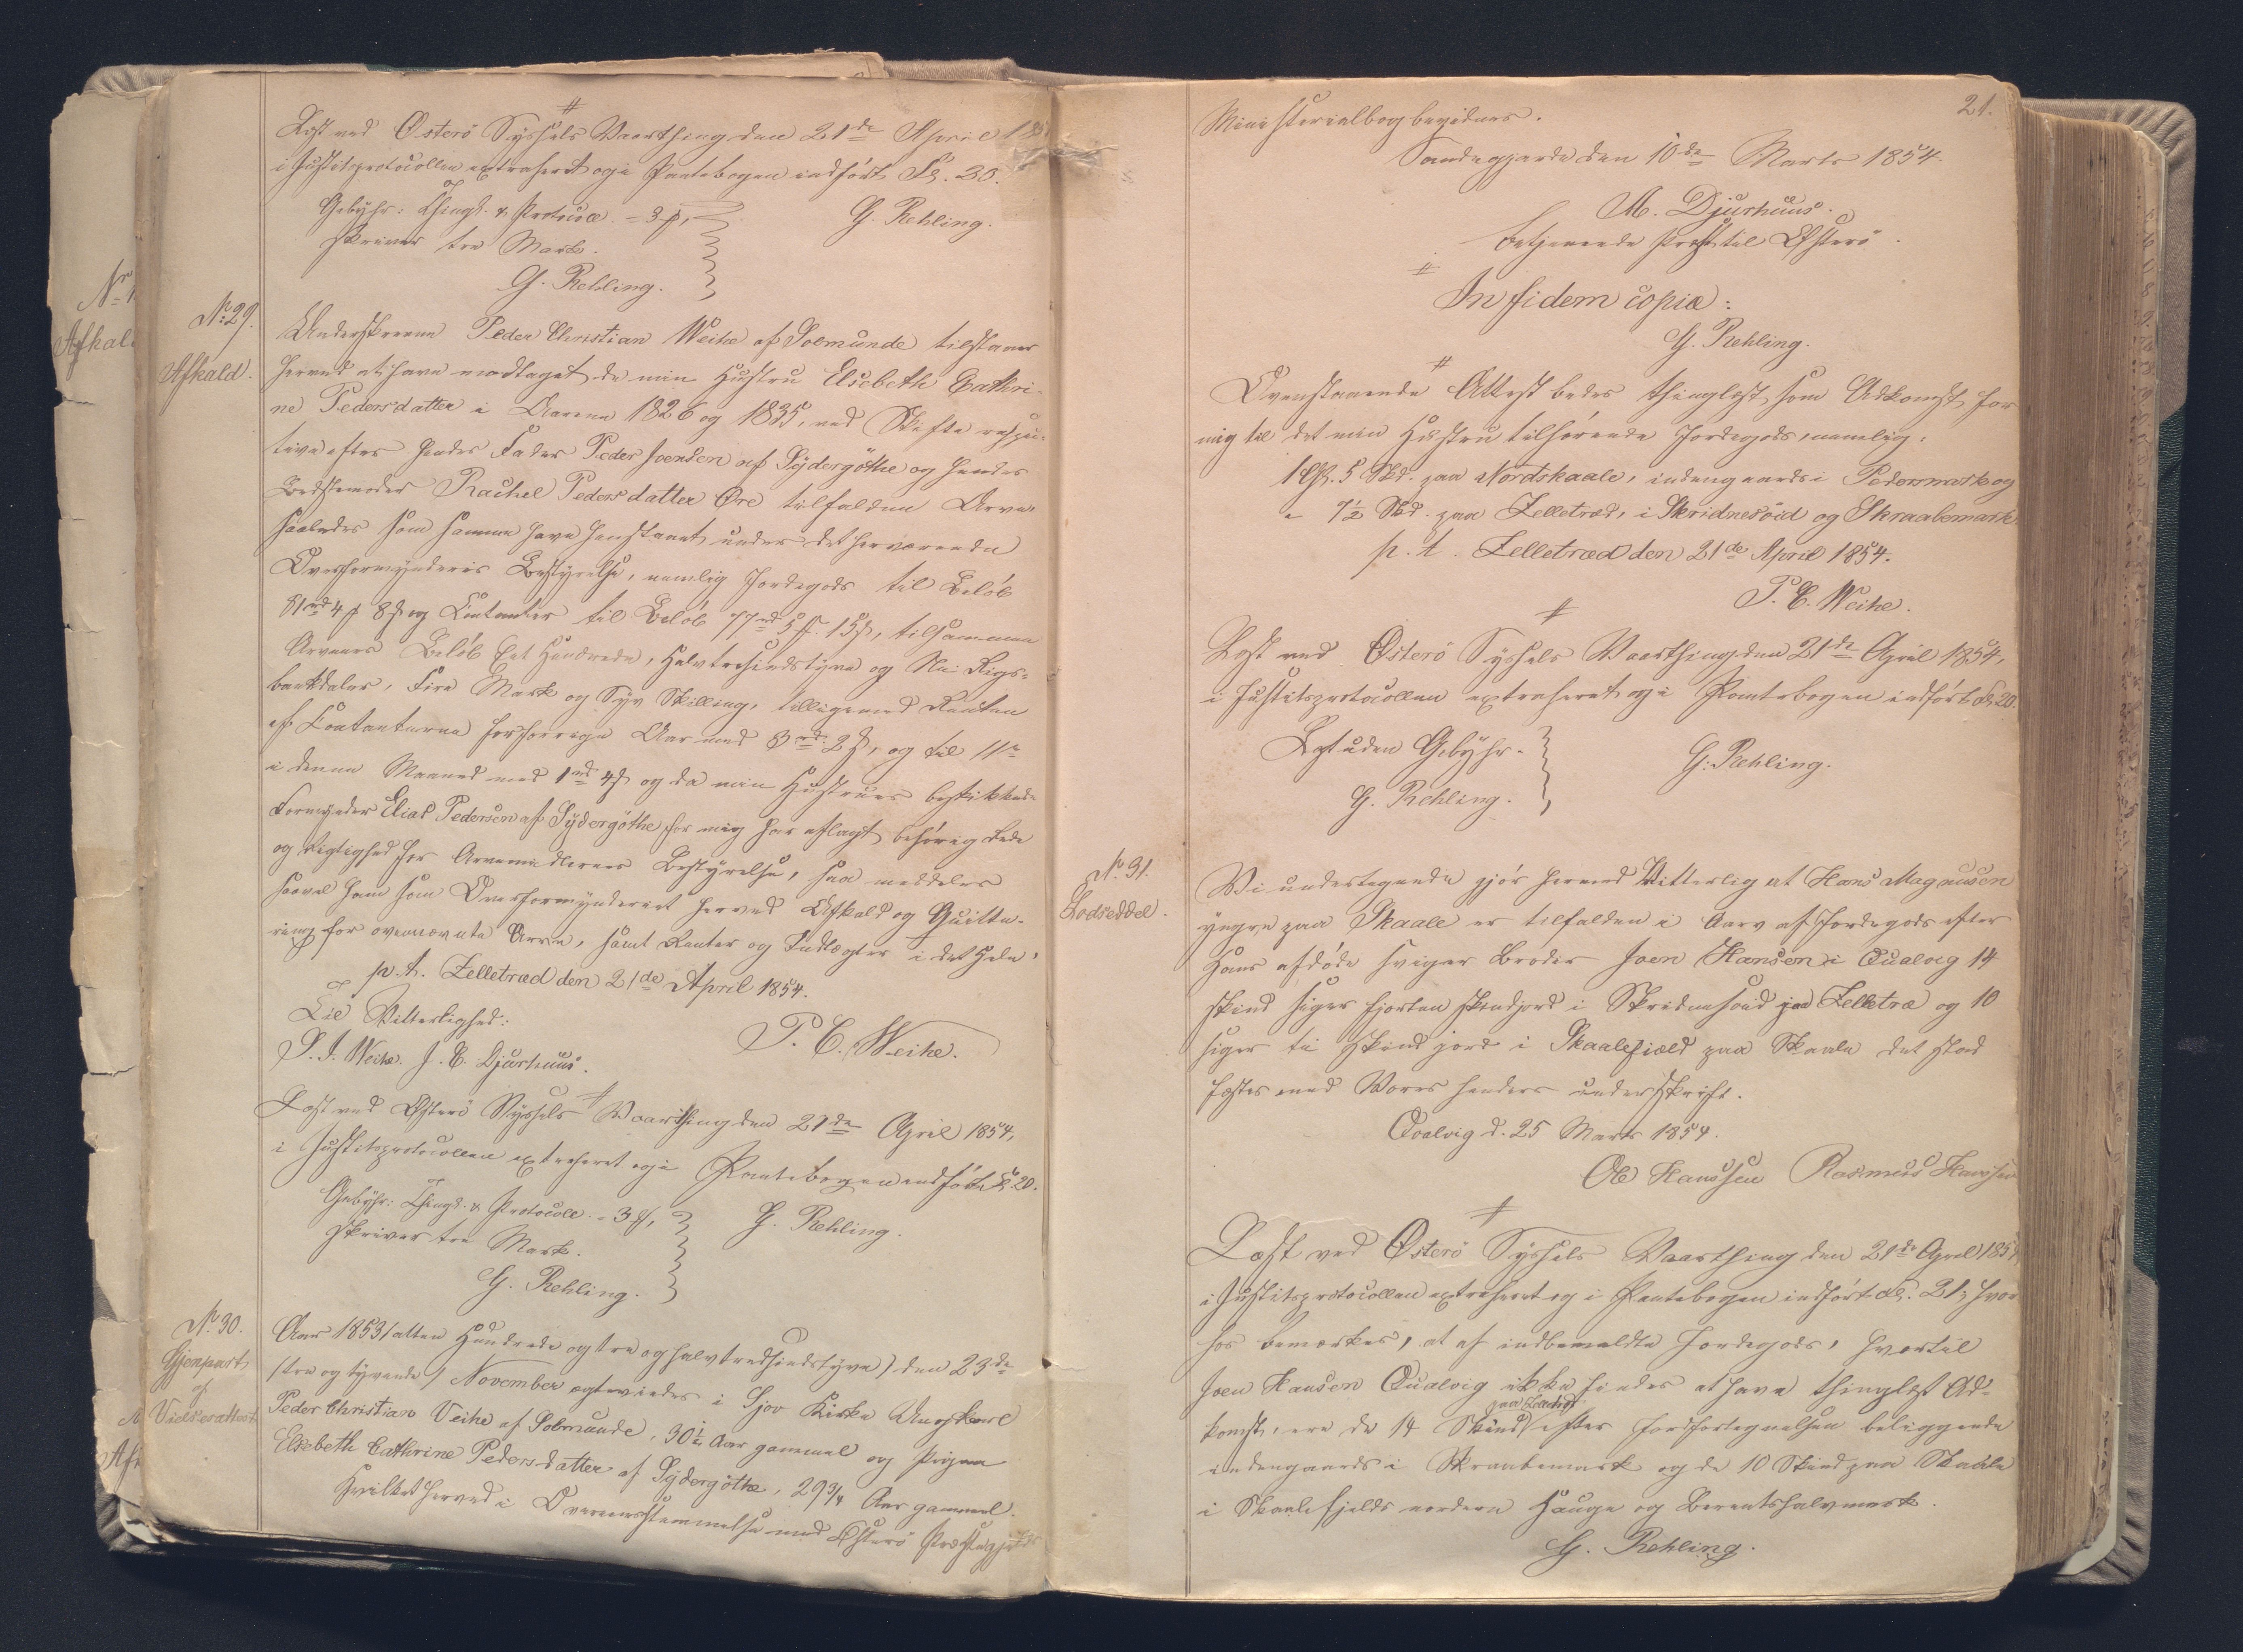 Læst ved Österö Syssels Vaarthing den 21de April 18
i Justitsprotocollen extraheret og i Pantebogen indfört Fol. 20.
Gebyhr: Thingl. & Protocol. = 3 ß,
skriver tre Mark.
G. Rehling.
G. Rehling.
No 29.
Afkald.
Underskrevne Peder Christian Weihe af Soemunde tilstaaer
herved at have modtaget de min Hustru Elsebeth Cathri-
ne Pedersdatter i Aarene 1826 og 1835, ved Skifte respec-
tive efter hendes Fader Peder Joensen af Sydergöthe og hendes
Bedstemoder Rachel Pedersdatter Öre tilfaldne Arve
saaledes som samme have henstaaet under det herværende
Overformynderies Bestyrelse, nemlig Jordegods til Belöb
81rd 4 ß 8 ß og Contanter til Belöb 77rd 5 ß 15 ß, tilsammen
Arvenes Belöb Eet Hundrede, Halvtresindstyve og Ni Rigs-
bankdaler, Fire Mark og Syv Skilling, tilligemed Renten
af Contanterne for forrige Aar med 3rd 2 ß, og til 11te
i denne Maaned med 1rd 4 ß og da min Hustrues beskikkede
Formynder Elias Pedersen af Sydergöthe for mig har aflagt behörig Rede
og Rigtighed for Arvemidlernes Bestyrelse, saa meddeles
saavel ham som Overformynderiet herved Afkald og Quitte-
ring for ovennævnte Arve, samt Renter og Indtægter i det Hele.
p. t. Zelletræd den 21de April 1854.
Til Vitterlighed:
P. C. Weihe.
S. J. Weihe. J. C. Djurhuus.
Læst ved Österö Syssels Vaarthing den 21de April 1854,
i Justitsprotocollen extraheret og i Pantebogen indfört Fol 20.
Gebyhr: Thingl. & Protocoll. = 3 ß,
G. Rehling.
skriver tre Mark.
G. Rehling.
No 30.
Gjenpart
af
Vielsesattest
Aar 1853 (atten Hundrede og tre og halvtredsindstyve) den 23de
(tre og tyvende) November ægteviedes i Gjov Kirke Ungkarl
Peder Christian Veihe af Solmunde, 30½ Aar gammel og Pigen
Elsebeth Cathrine Pedersdatter af Sydergöthe, 29¾ Aar gammel.
Hvilket herved i Overensstemmelse med Österö Præstegjelds
21.
Ministerialbog bevidnes.
Sandegjærde den 10de Marts 1854.
M. Djurhuus.
betjenende Præst til Österö.
In fidem copiæ:
G. Rehling.
Ovenstaaende Attest bedes thinglæst som Adkomst for
mig til det min Hustru tilhörende Jordegods, nemlig:
1 Gl. 5 Skd. paa Nordskaale, indengaards i Pedersmark og
" 7½ Skd. paa Zelletræd, i Skridnesöid og Skraabemark
p. t. Zelletræd den 21de April 1854.
P. C. Weihe.
Læst ved Österö Syssels Vaarthing den 21de April 1854,
i Justitsprotocollen extraheret og i Pantebogen indfört Fol 20.
Læst uden Gebyhr.
G. Rehling.
G. Rehling.
No 31.
Lodseddel.
Vi undertegnede gjör herved Vitterlig at Hans Magnusen
yngre paa Skaale er tilfalden i Aarv af Jordegods efter
Hans afdöde Sviger Broder Joen Hansen i Qualvig 14
skind siger fjorten skindjord i Skridnesöid paa Zelletræ og 10
siger ti skind jord i Skaalefjæld paa Skaale det stad
festes med Vores henders underskrift.
Qvalvig d. 25 Marts 1854.
Ole Hanssen Rasmus Hansen
Læst ved Österö Syssels Vaarthing den 21de April 1854
i Justitsprotocollen extraheret og i Pantebogen indfört Fol. 21; hvor
hos bemærkes, at af indbemeldte Jordegods, hvortil
Joen Hansen Qualvig ikke findes at have thinglæst Ad-
komst, ere de 14 Skind paa Zelletræd efter Jordfortegnelsen beliggende
indengaards i Skraabemark og de 10 Skind paa Skaale
i Skaalefjelds nordere Hauge og Berentshalvmark.
G. Rehling.